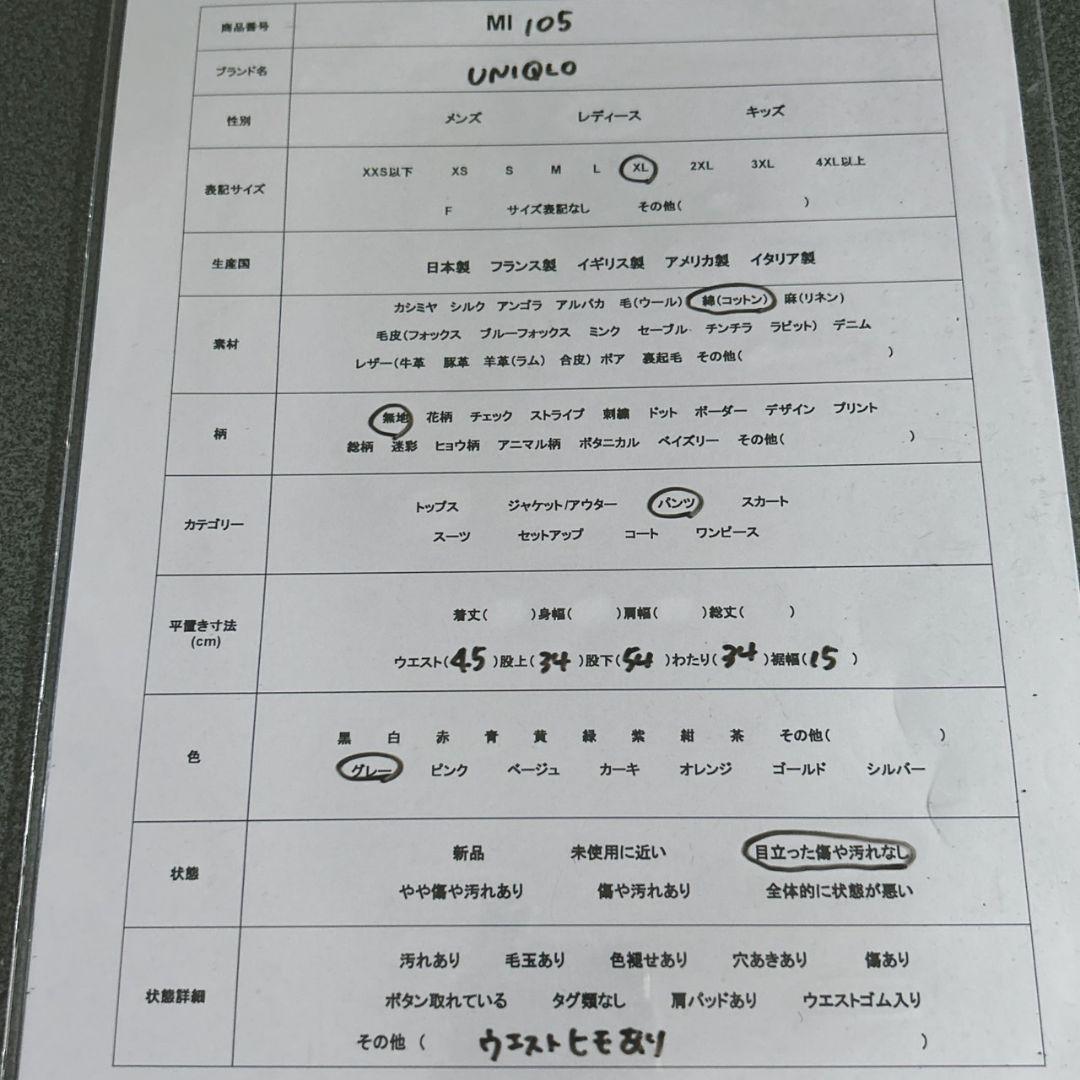 商品番号 MI 105
ブランド名 UNIQLO
性別 メンズ レディース キッズ
表記サイズ
XXS以下 XS S M L XL 2XL 3XL 4XL以上
F サイズ表記なし その他( )
生産国 日本製 フランス製 イギリス製 アメリカ製 イタリア製
素材
カシミヤ シルク アンゴラ アルパカ 毛(ウール) 綿(コットン) 麻(リネン)
毛皮(フォックス ブルーフォックス ミンク セーブル チンチラ ラビット) デニム
レザー(牛革 豚革 羊革(ラム) 合皮) ボア 裏起毛 その他( )
柄
無地 花柄 チェック ストライプ 刺繍 ドット ボーダー デザイン プリント
総柄 迷彩 ヒョウ柄 アニマル柄 ボタニカル ペイズリー その他( )
カテゴリー
トップス ジャケット/アウター パンツ スカート
スーツ セットアップ コート ワンピース
平置き寸法
(cm)
着丈( )身幅( )肩幅( )総丈( )
ウエスト(45)股上(34)股下(54)わたり(34)裾幅(15)
色
黒 白 赤 青 黄 緑 紫 紺 茶 その他( )
グレー ピンク ベージュ カーキ オレンジ ゴールド シルバー
状態
新品 未使用に近い 目立った傷や汚れなし
やや傷や汚れあり 傷や汚れあり 全体的に状態が悪い
状態詳細
汚れあり 毛玉あり 色褪せあり 穴あきあり 傷あり
ボタン取れている タグ類なし 肩パッドあり ウエストゴム入り
その他 ( ウエストヒモあり )